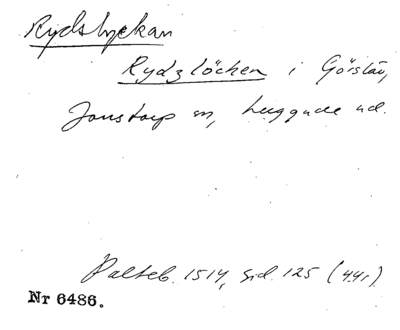 Rydslyckan
Rydzlöcken i Görslöv,
Jonstorp sn, Luggude hd.
Palteb. 1514, sid. 125 (44r)
Nr 6486.